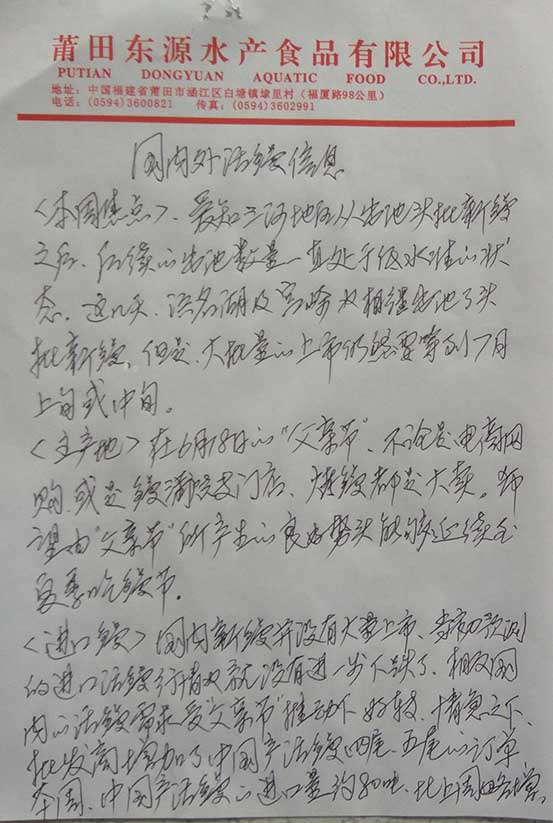 莆田东源水产食品有限公司
PUTIAN DONGYUAN AQUATIC FOOD CO.,LTD.
地址:中国福建省莆田市涵江区白塘镇埭里村(福厦路98公里)
电话:(0594)3600821 传真:(0594)3602991
国内外活鳗信息
〈本周焦点〉、爱知三河地区从出池头批新鳗
之后、后续的出池数量一直处于低水准的状
态。这几天、浜名湖及宫崎也相继出池了头
批新鳗。但是、大批量的上市仍然要等到7月
上旬或中旬。
〈主产地〉在6月18日的“父亲节”、不论是电商网
购、或是鳗蒲烧专门店、烤鳗都是大卖。希
望由“父亲节”所产生的良好势头能够延续至
夏季吃鳗节。
〈进口鳗〉国内新鳗并没有大量上市、当初预测
的进口活鳗行情也就没有进一步下跌了、相反国
内的活鳗需求受“父亲节”推动下好转、情急之下、
批发商增加了中国产活鳗四尾、五尾的订单
本周、中国产活鳗的进口量约80吨、比上周略增。